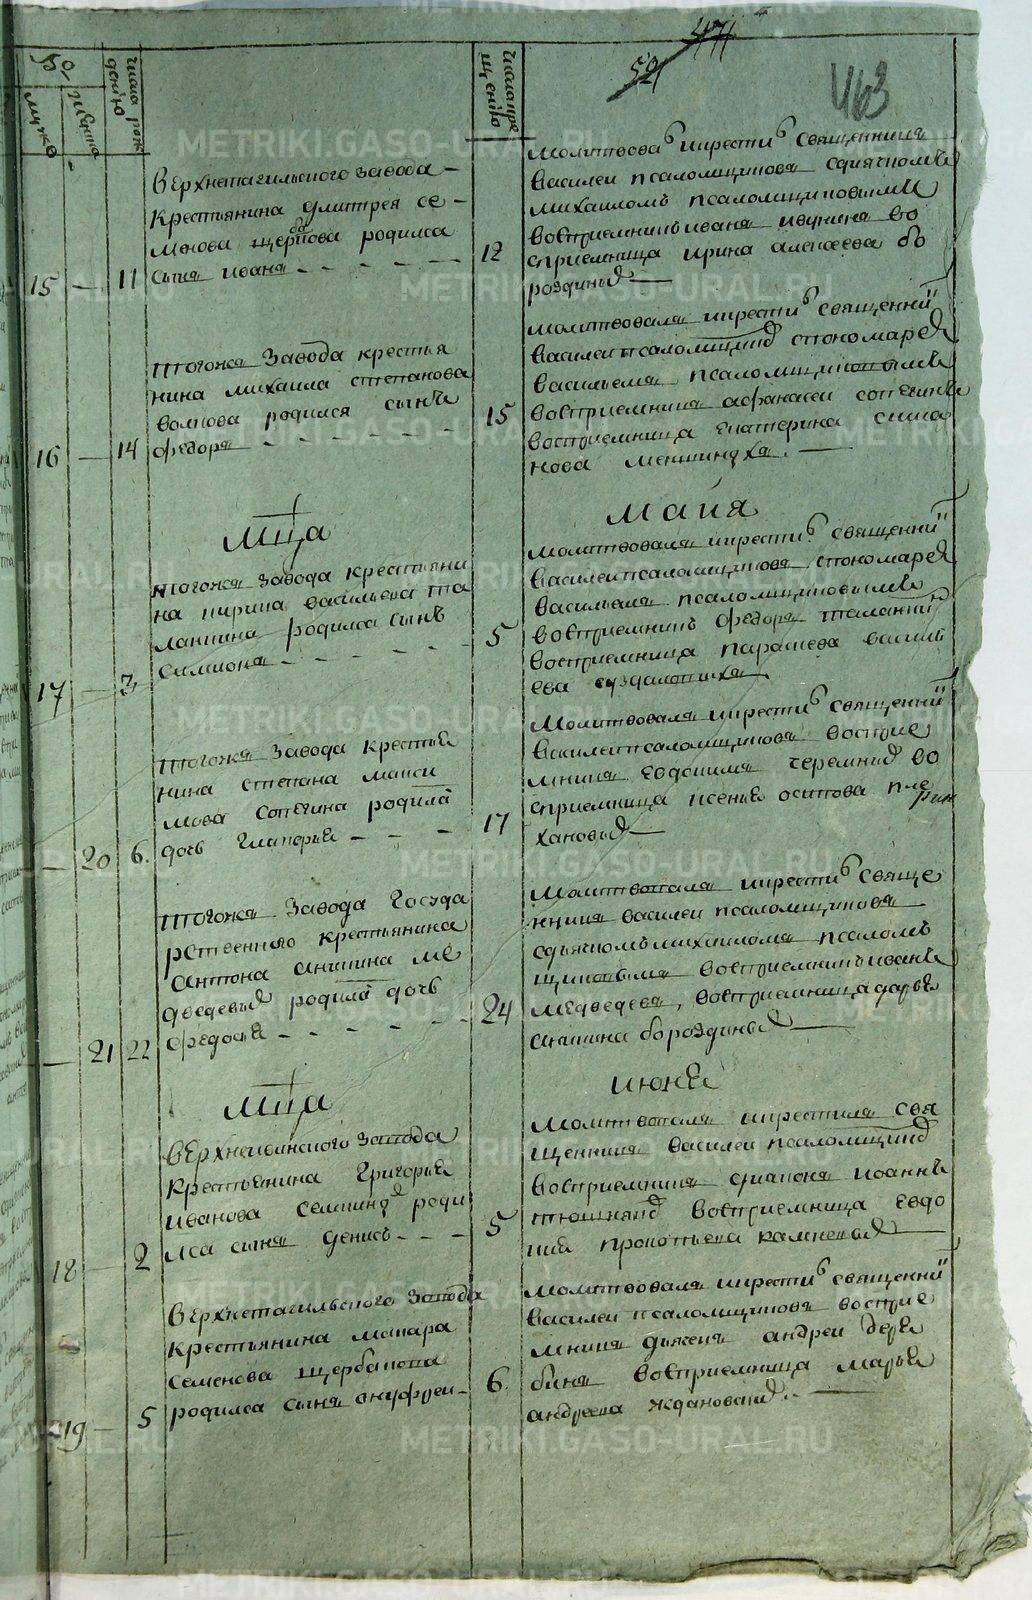 471
52
463
число рож
дения
мужска
женска
число кре
щения
Верхнетагильского завода
крестьянина Дмитрея Се
менова Щербакова родился
15 — 11 сынъ Иванъ
12
Молитвовалъ и крестилъ священникъ
Василеи Псаломщиковъ с дьячкомъ
Михаиломъ Псаломщиковымъ
восприемникъ Иванъ
восприемница Ирина Алексеева Бо
роздиныхъ
Тогожъ завода крестья
нина Михаила Степанова
Волкова родился сынъ
16 — 14 Федоръ
15
Молитвовалъ и крестилъ священникъ
Василеи Псаломщиковъ с пономаремъ
Васильемъ Псаломщиковымъ
восприемникъ Афанасеи Сопегинъ
восприемница Екатерина Симо
нова
Мца
Маия
Тогожъ завода крестьяни
на Кирила Васильева Та
ланкина родился сынъ
17 — 3 Симионъ
5
Молитвовалъ и крестилъ священникъ
Василеи Псаломщиковъ с пономаремъ
Васильемъ Псаломщиковымъ
восприемникъ Федоръ Таланкинъ
восприемница Парасева Василь
ева
Тогожъ завода крестья
нина Степана Макси
мова Сопегина родилась
— 20 6. дочь Гликерья
17
Молитвовалъ и крестилъ священникъ
Василеи Псаломщиковъ восприе
мникъ Евдокимъ Черемныхъ во
сприемница Ксенья Осипова Пле
хановыхъ
Тогожъ завода Госуда
рственного крестьянина
Антона Аникина Ме
дведевыхъ родилась дочь
— 21 22 Федосья
24
Молитвовалъ и крестилъ священ
никъ Василеи Псаломщиковъ
с дьячкомъ Михаиломъ Псалом
щиковымъ восприемникъ Иванъ
Медведевъ, восприемница Дарья
Аникина Бороздиныхъ
Мца
Июня
Верхнейвинского завода
крестьянина Григорья
Иванова роди
18 — 2 лса сынъ Денисъ
5
Молитвовалъ и крестилъ свя
щенникъ Василеи Псаломщиковъ
восприемникъ диаконъ Иоаннъ
восприемница Евдо
кия Прокопьева
Верхнетагильского завода
крестьянина Макара
Семенова Щербакова
19 — 5 родился сынъ Ануфреи
6.
Молитвовалъ и крестилъ священникъ
Василеи Псаломщиковъ восприе
мникъ дьяконъ Андреи Деря
бинъ восприемница Марья
Андреева Ждановскихъ
METRIKI.GASO-URAL.RU